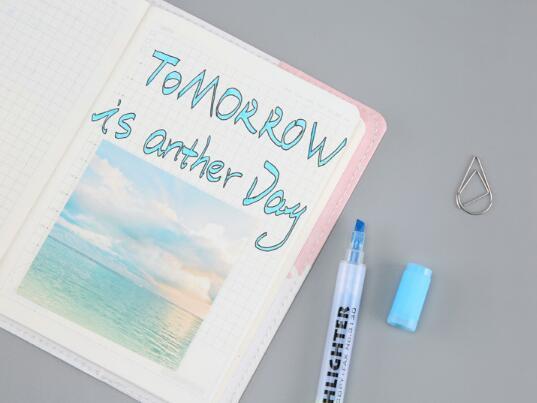 TOMORROW
is anther Day
HLIGHTER